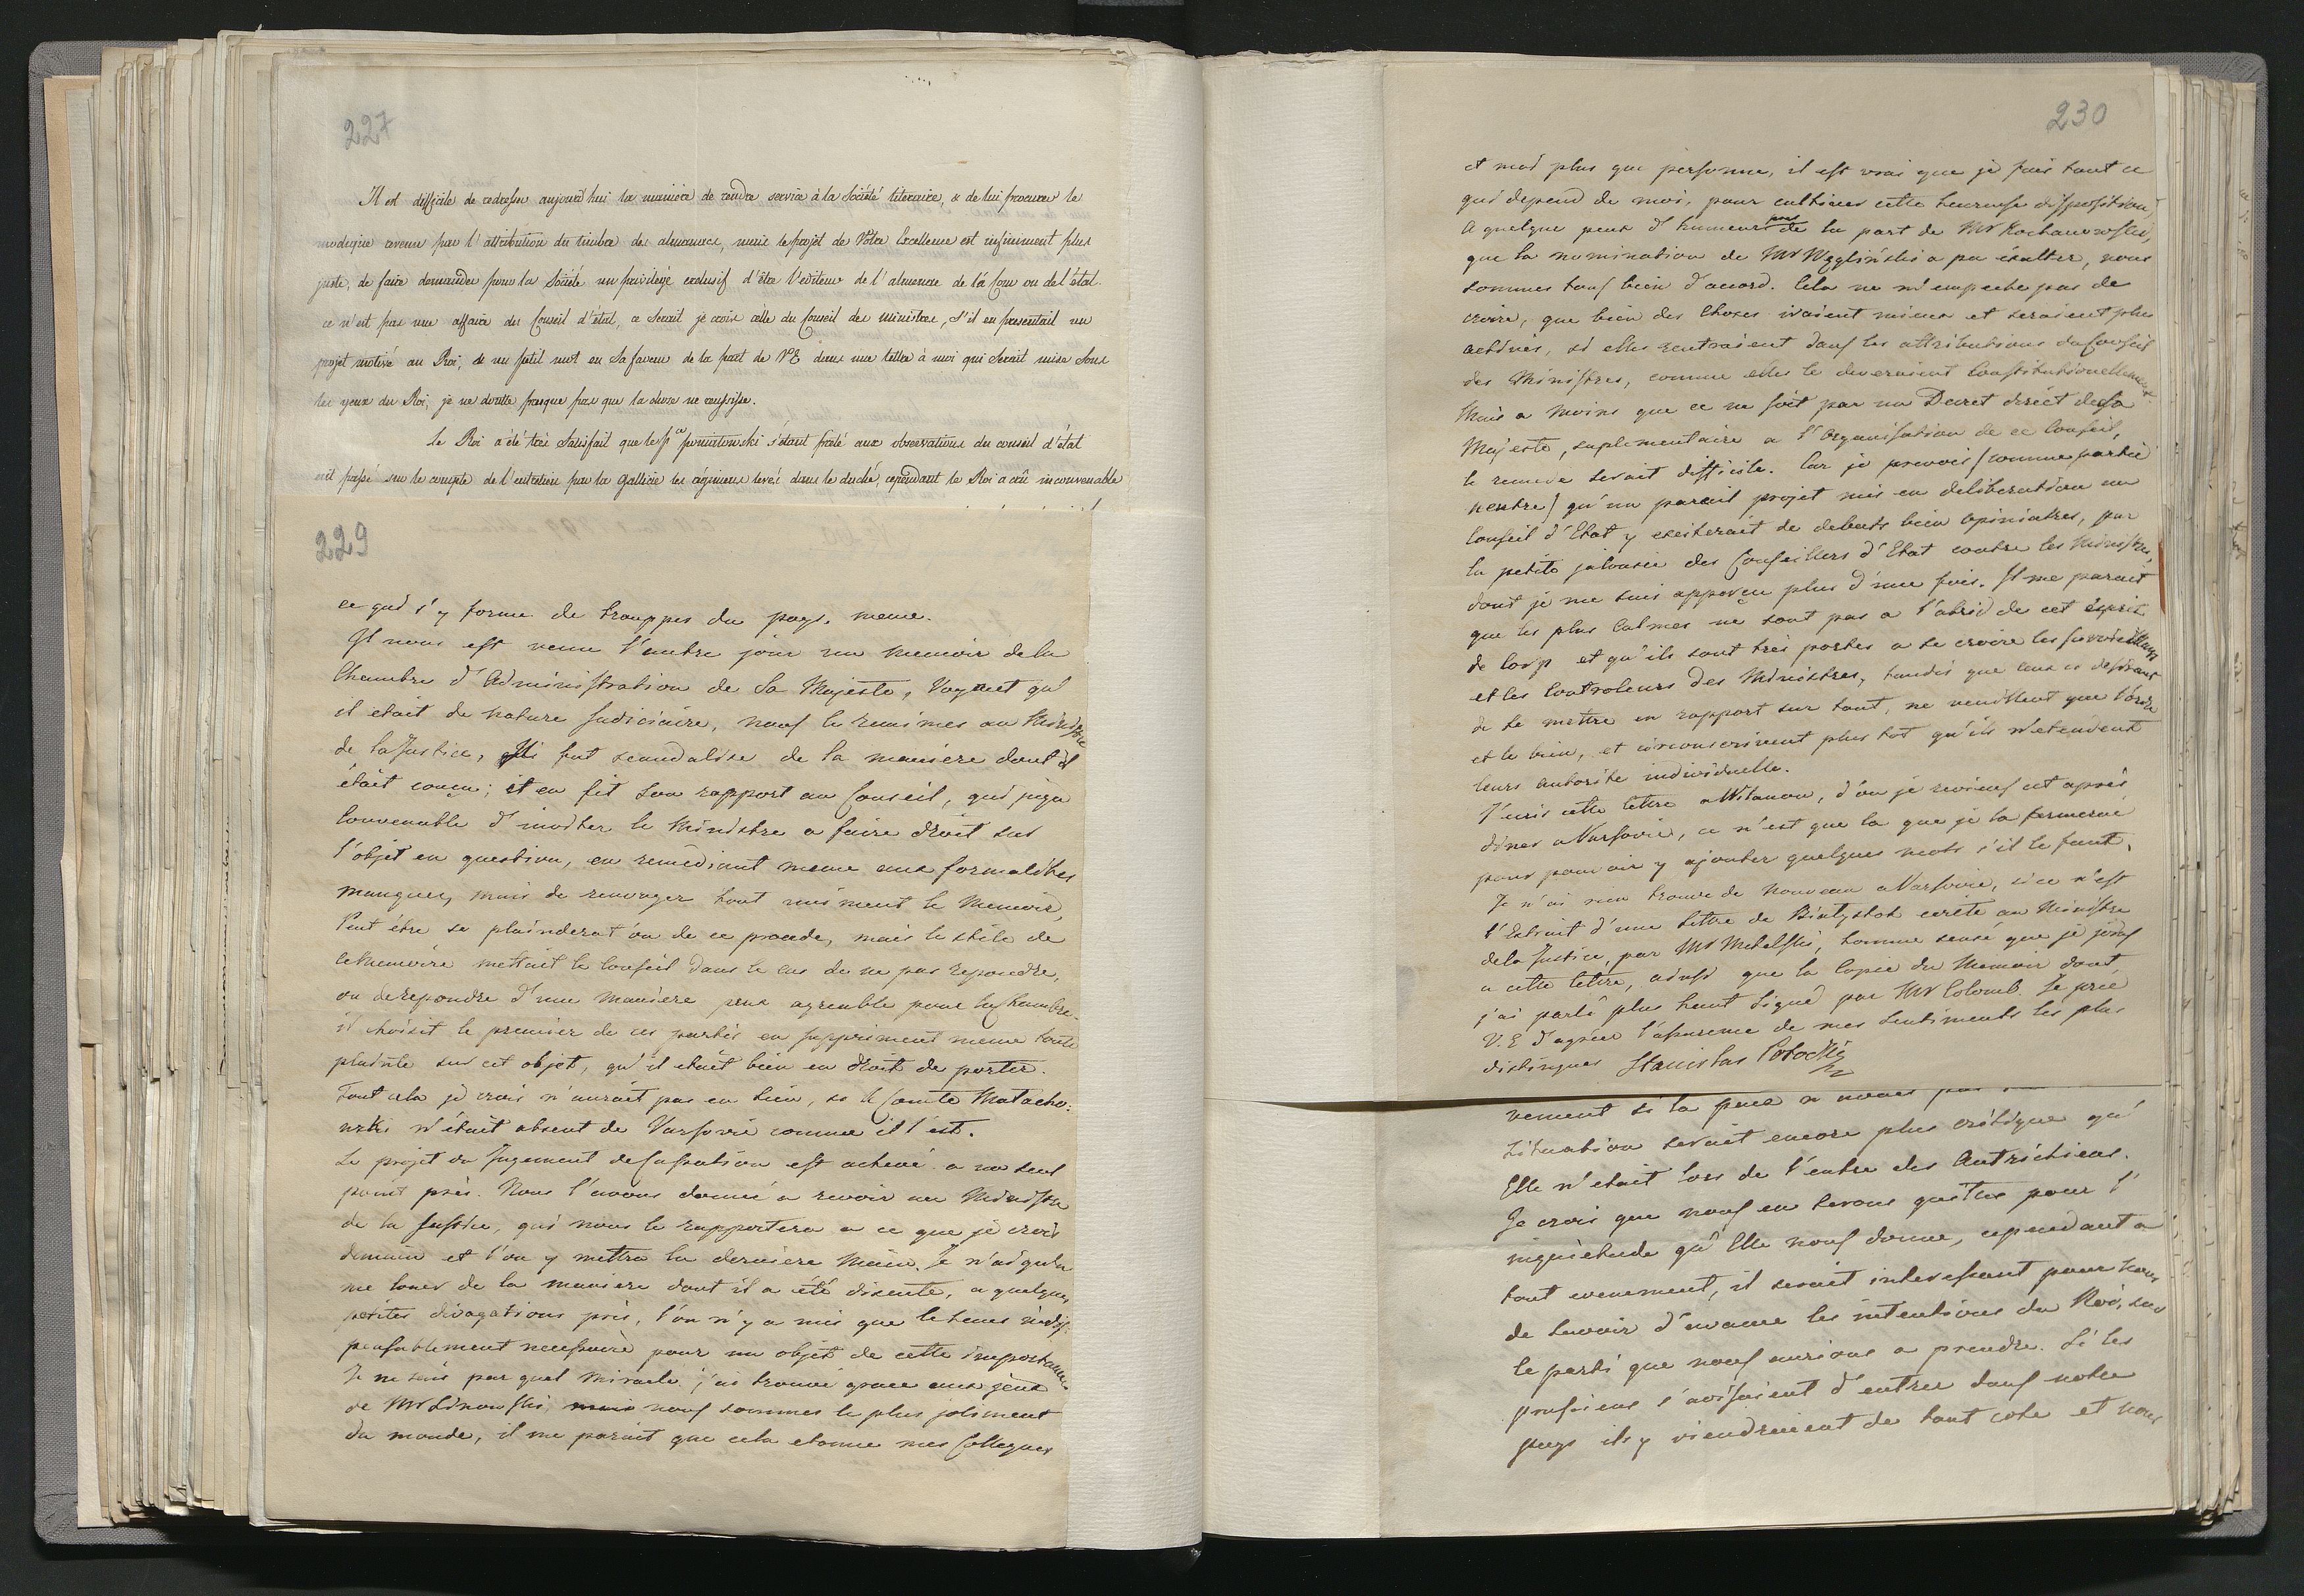 227
Il est difficile de redresser aujourd'hui la manière de rendre service à la Société literaire, & de lui procurer le
modique revenu par l'attribution du timbre des almanacs, mais le projet de Votre Excellence est infiniment plus
juste, de faire demander pour la Société un privilège exclusif d'être l'editeur de l'almanac de la Cour ou de l'état.
ce n'est pas une affaire du Conseil d'état, ce serait je crois celle du Conseil des ministres, s'il en presentait un
projet motivé au Roi, & un petit mot en sa faveur de la part de V E dans une lettre à moi qui serait mise sous
les yeux du Roi, je ne doutte presque pas que la chose ne reussisse.
Le Roi a été très satisfait que le pce poniatowski s'étant preté aux observations du conseil d'état
ait passé sur le compte de l'entretien par la Gallicie les régimens levés dans le duché, cependant le Roi a crû inconvenable
229
ce qui s'y forme de trouppes du pays meme.
Il nous est venu l'autre jour un memoir de la
Chambre d'Administration de Sa Majesté, Voyant qu'
il etait de nature judiciaire, nous le remimes au Ministre
de la Justice, qui fut scandalisé de la maniere dont il
était conçu; et en fit son rapport au Conseil, qui jugea
convenable d'inviter le Ministre a faire droit sur
l'objet en question, en remediant meme aux formalités
manquées, mais de renvoyer tout uniment le Memoire,
Peut être se plainderat on de ce procedé, mais le stile de
ce Memoire mettait le Conseil dans le cas de ne pas repondre,
ou de repondre d'une maniere peu agreable pour la Chambre.
il choisit le premier de ces partis en suppriment meme toute
plainte sur cet objet, qu'il etait bien en droit de porter.
Tout cela je crois n'aurait pas eu lieu, si le Comte Matacho:
wski n'était absent de Varsovie comme il l'est.
Le projet du Jugement de Cassation est achevé a un seul
point près. Nous l'avons donné a revoir au Ministre
de la Justice, qui nous le rapportera a ce que je crois
demain et l'on y mettra la derniere main. Je n'ai qu'a
me louer de la maniere dont il a été discuté, a quelques
petites divagations près, l'on n'y a mis que le tems indis:
pensablement necessaire pour un objet de cette importance
Je ne sais par quel miracle j'ai trouvé grace aux yeux
de Mr Linowski, nous sommes le plus joliment
du monde, il me parait que cela etonne mes Collegues
230
et moi plus que personne, il est vrai que je fais tout ce
qui depend de moi, pour cultiver cette heureuse disposition,
A quelque peux d'humeurs près de la part de Mr Kochanowski,
que la nomination de Mr Węgliński a pu exalter, nous
sommes tous bien d'accord. Cela ne m'empeche pas de
croire, que bien des choses iraient mieux et seraient plus
actives, si elles rentraient dans les attributions du Conseil
des Ministres, comme elles le deveraient Constitutionellement.
Mais a moins que ce ne soit par un Decret direct de Sa
Majesté, suplementaire a l'Organisation de ce Conseil,
le remede serait difficile. Car je prevois (comme partie
neutre) qu'un pareil projet mis en deliberation au
Conseil d'Etat y exciterait de debats bien opiniatres, par
la petite jalousie des Conseillers d'Etat contre les Ministres,
dont je me suis apperçu plus d'une fois. Il me parait
que les plus calmes ne sont pas a l'abri de cet esprit
de Corp et qu'ils sont très portés a se croire les surveillans
et les Controleurs des Ministres, tandis que ceux ci desirant
de se mettre en rapport sur tout, ne veuillent que l'ordre
et le bien, et circonscrivent plus tot qu'ils n'etendent
leurs autorité individuelle.
J'ecris cette lettre a Wilanow, d'ou je reviens cet après
diner a Varsovie, ce n'est que la que je la fermerai
pour pouvoir y ajouter quelques mots s'il le faut.
Je n'ai rien trouvé de nouveau a Varsovie, si ce n'est
l'Extrait d'une lettre de Białystok ecrite au Ministre
de la Justice, par Mr Michalski, homme sensé que je joins
a cette lettre, ainsi que la Copie du Memoir dont
j'ai parlé plus haut Signé par Mr Colomb. Je prie
V.E d'agréer l'assurence de mes sentiments les plus
distingues Stanislas Potocki
vement si la paix n
Situation serait encore plus critique qu'
Elle n'etait lors de l'entré des Autrichiens.
Je crois que nous en serons quittes pour l'
inquietude qu'Elle nous donne, cependant a
tout evenement, il serait interessant pour nous
de savoir d'avance les intentions du Roi, sur
le parti que nous aurions a prendre. Si les
prussiens s'avisaient d'entrer dans notre
pays ils y viendraient de tout coté et nous